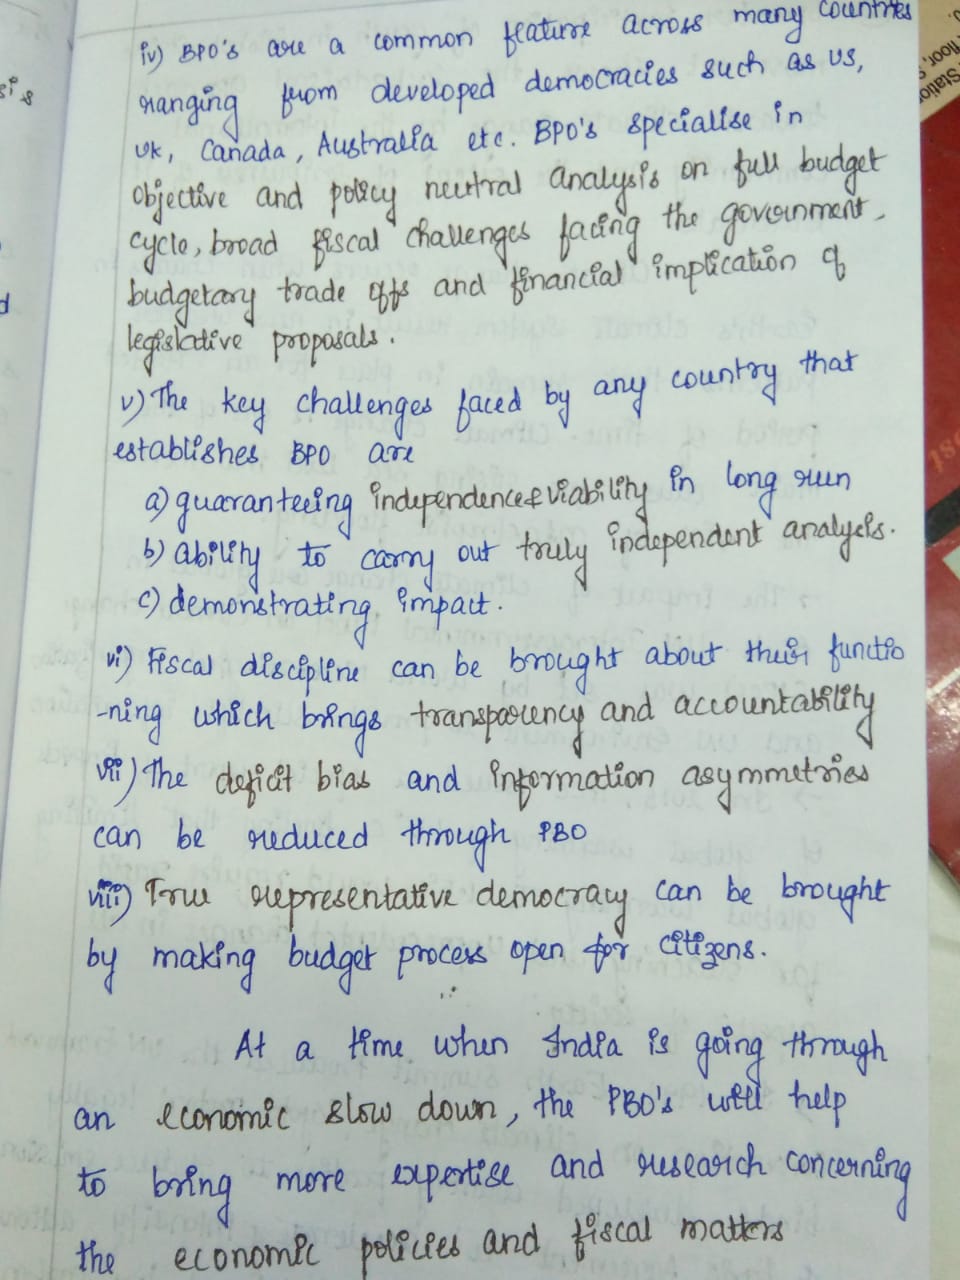 iv) BPO's are a common feature across many countries
ranging from developed democracies such as US,
UK, Canada, Australia etc. BPO's specialise in
objective and policy neutral analysis on full budget
cycle, broad fiscal challenges facing the government,
budgetary trade offs and financial implication of
legislative proposals.
v) The key challenges faced by any country that
establishes BPO are
a) guaranteeing independence & viability in long run
b) ability to carry out truly independent analysis.
c) demonstrating impact.
vi) Fiscal discipline can be brought about their functio
-ning which brings transparency and accountability
vii) The deficit bias and information asymmetries
can be reduced through PBO
viii) True representative democracy can be brought
by making budget process open for citizens.
At a time when India is going through
an economic slow down, the PBO's will help
to bring more expertise and research concerning
the economic policies and fiscal matters
floor,
Statio